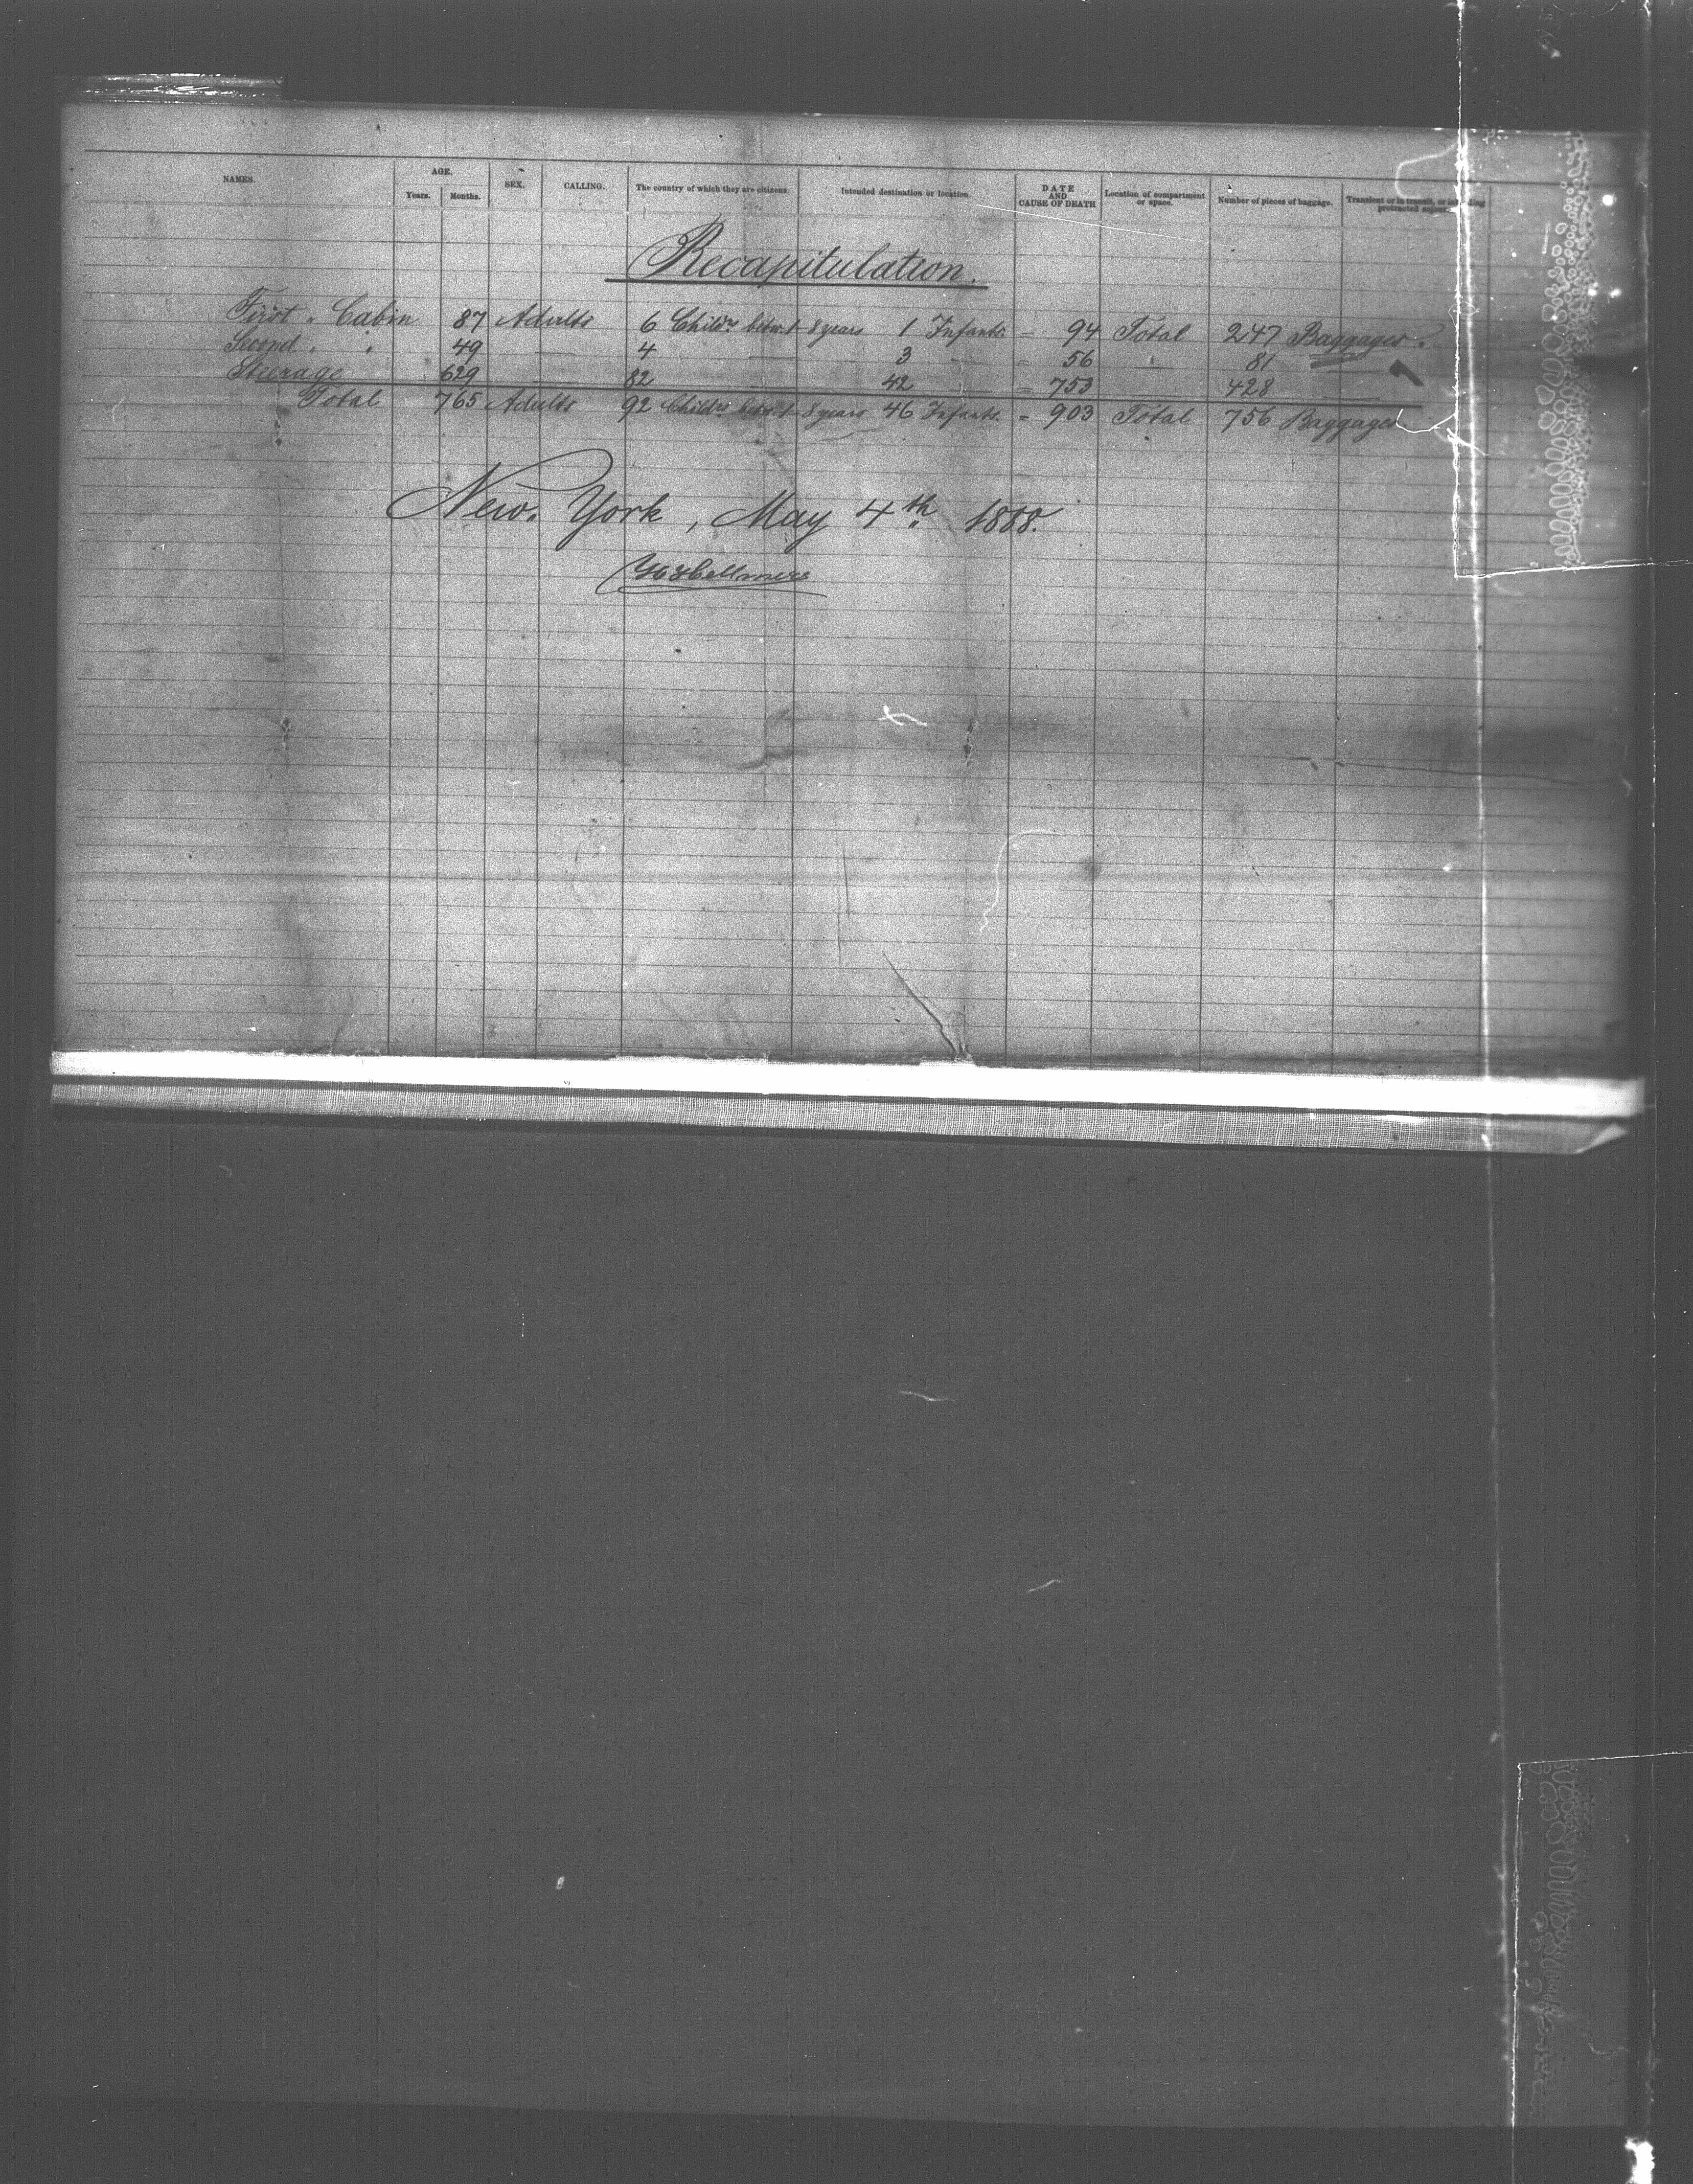 NAMES. AGE. SEX. CALLING. The country of which they are citizens. Intended destination or location. DATE AND CAUSE OF DEATH Location of compartment or space. Number of pieces of baggage. Transient or in transit, or intending protracted
Years. Months.
Recapitulation.
First " Cabin 87 Adults 6 Childn betw. 1-8 years 1 Infants = 94 Total 247 Baggages.
Second " " 49 — 4 — 3 — = 56 " 81
Steerage 629 — 82 — 42 — = 753 — 428 —
Total 765 Adults 92 Childn betw. 1-8 years 46 Infants = 903 Total 756 Baggages
New York, May 4th 1888.